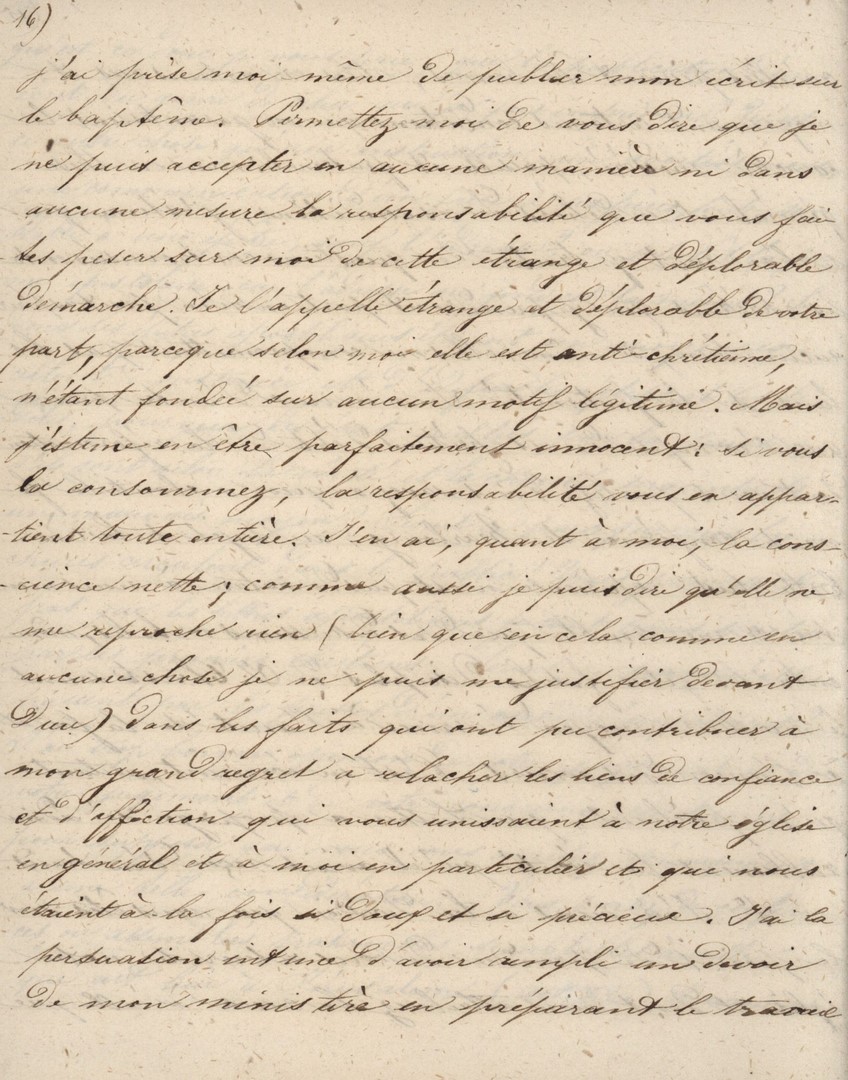 16)
j'ai prise moi même de publier mon écrit sur
le baptême. Permettez moi de vous dire que je
ne puis accepter en aucune manière ni dans
aucune mesure la responsabilité que vous fai
-tes peser sur moi de cette étrange et déplorable
démarche. Je l'appelle étrange et déplorable de votre
part, parceque selon moi elle est anti-chrétienne,
n'étant fondée sur aucun motif légitime. Mais
j'estime en être parfaitement innocent: si vous
la consommez, la responsabilité vous en appar-
-tient toute entière. J'en ai, quant à moi, la cons-
-cience nette; comme aussi je puis dire qu'elle ne
me reproche rien (bien que en cela comme en
aucune chose je ne puis me justifier devant
Dieu) dans les faits qui ont pu contribuer à
mon grand regret à relacher les liens de confiance
et d'affection qui vous unissaient à notre église
en général et à moi en particulier et qui nous
étaient à la fois si doux et si précieux. J'ai la
persuasion intime d'avoir rempli un devoir
de mon ministère en préparant le travail